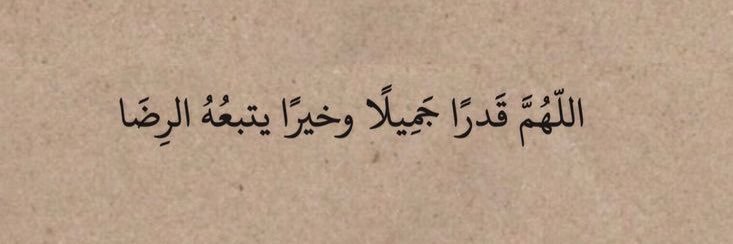 اللّهُمَّ قَدرًا جَمِيلًا وخيرًا يتبعُهُ الرِضَا